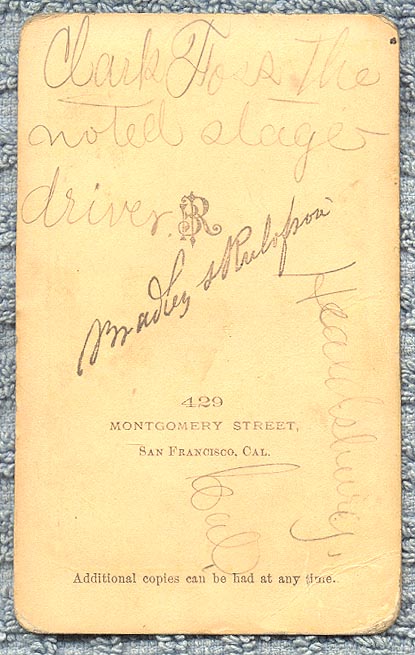 Clark Foss the
noted stage
driver.
BR
Bradley & Rulofson
Healdsburg
Cal
429
MONTGOMERY STREET,
SAN FRANCISCO, CAL.
Additional copies can be had at any time.